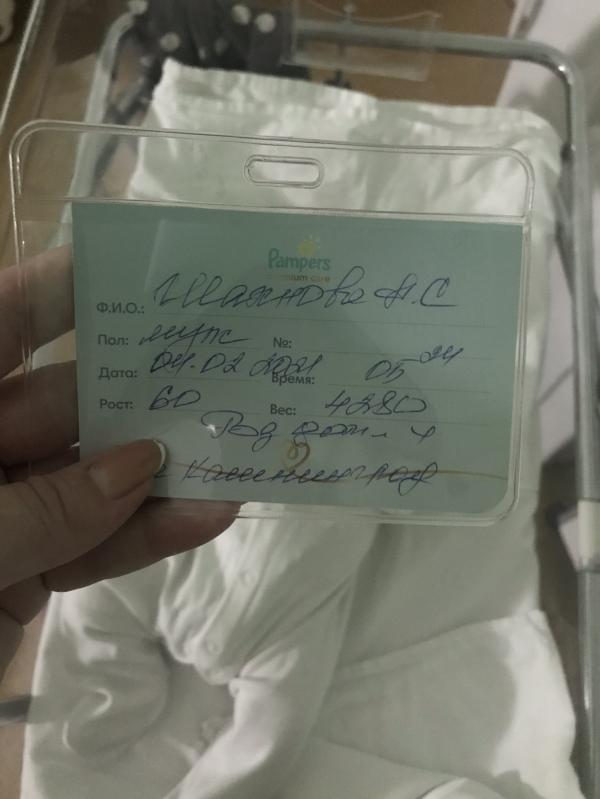 Pampers
premium care
Ф.И.О.: Шахнова А.С
Пол: муж №:
Дата: 04.02 2021 Время: 05 24
Рост: 60 Вес: 4280
Род дом 4
г Калининград